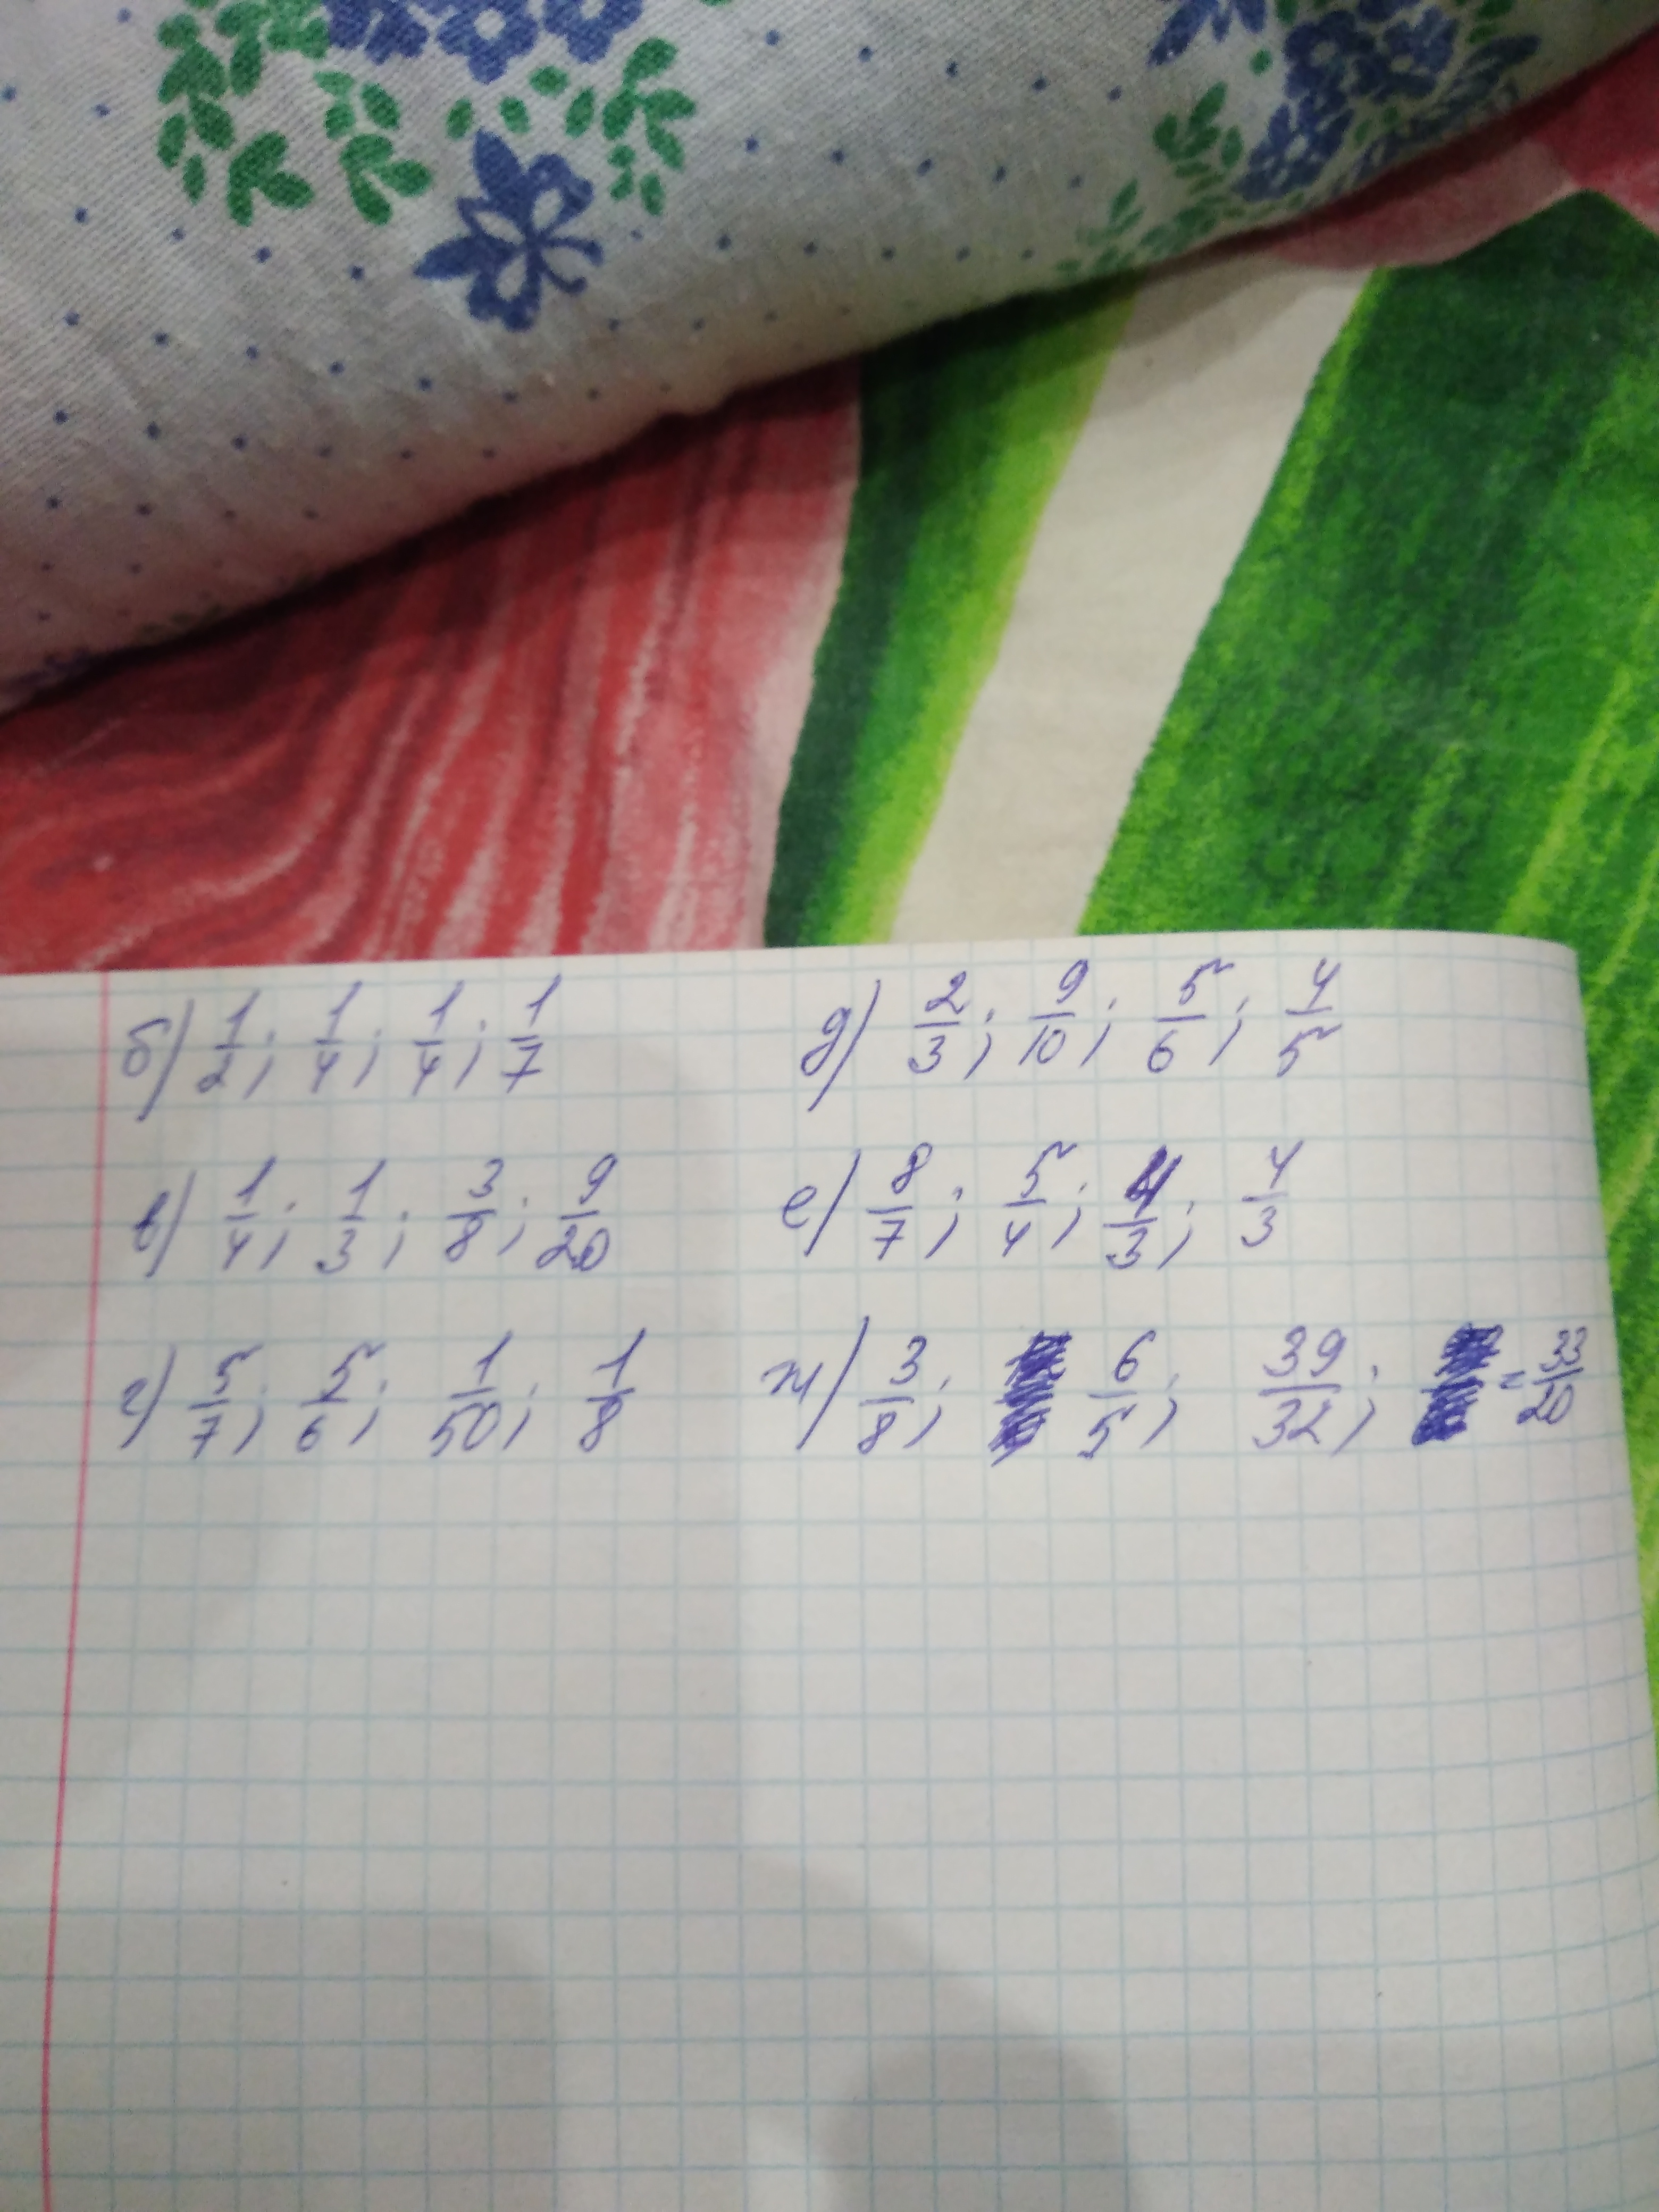 б) 1/2; 1/4; 1/4; 1/7
в) 1/4; 1/3; 3/8; 9/20
г) 5/7; 5/6; 1/50; 1/8
д) 2/3; 9/10; 5/6; 4/5
е) 8/7; 5/4; 4/3; 4/3
ж) 3/8; 6/5; 39/32; = 33/20